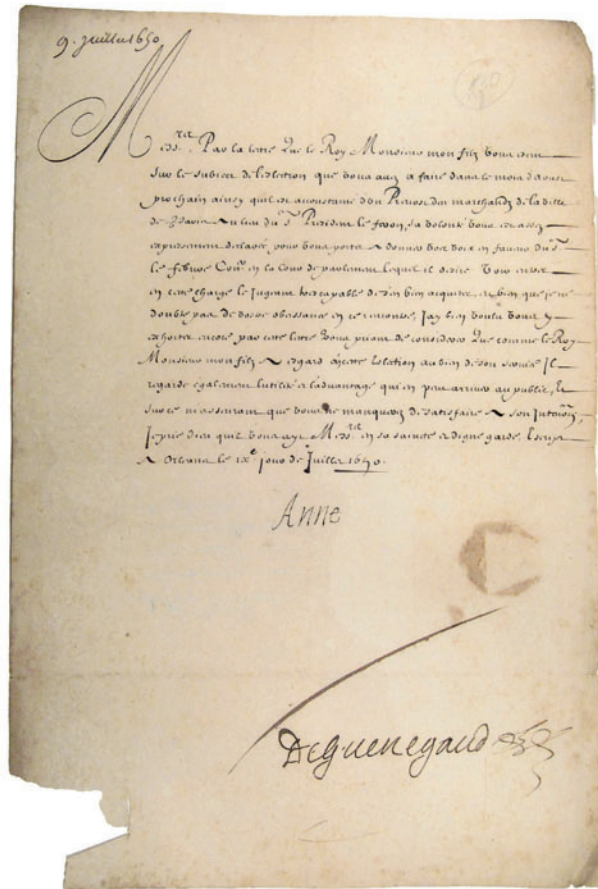 9. Juillet 1650
Mess.rs Par la lettre Que le Roy Monsieur mon filz vous escrit
Sur le subiect de l'eslection que vous avez a faire dans le mois d'aoust
prochain ainsy quil est accoustumé d'un Prevost des marchandz de la ville
de Paris Au lieu du S.r President le feron, sa volonté vous est assez
expressement declarée pour vous porter A donner voz voix en faveur du S.r
le febvre Con.er en la Cour de parlement lequel il desire Voir entrer
en cette charge le Jugeant tres capable de s'en bien acquiter, et bien que je ne
doubte pas de vostre obeissance en ce rencontre, Jay bien voulu vous y
exhorter encore par cette lettre vous priant de considerer Que comme le Roy
Monsieur mon filz A esgard en cette Eslection au bien de son service Il
regarde egalement l'utilité et l'advantage qui en peut arriver au public, Et
sur ce m'asseurant que vous ne manquerez de satisfaire A son Intention,
Je prie dieu quil vous ayt Mess.rs en sa saincte et digne garde. Escript
A Orleans le ix.e jour de Juillet 1650.
Anne
De guenegaud